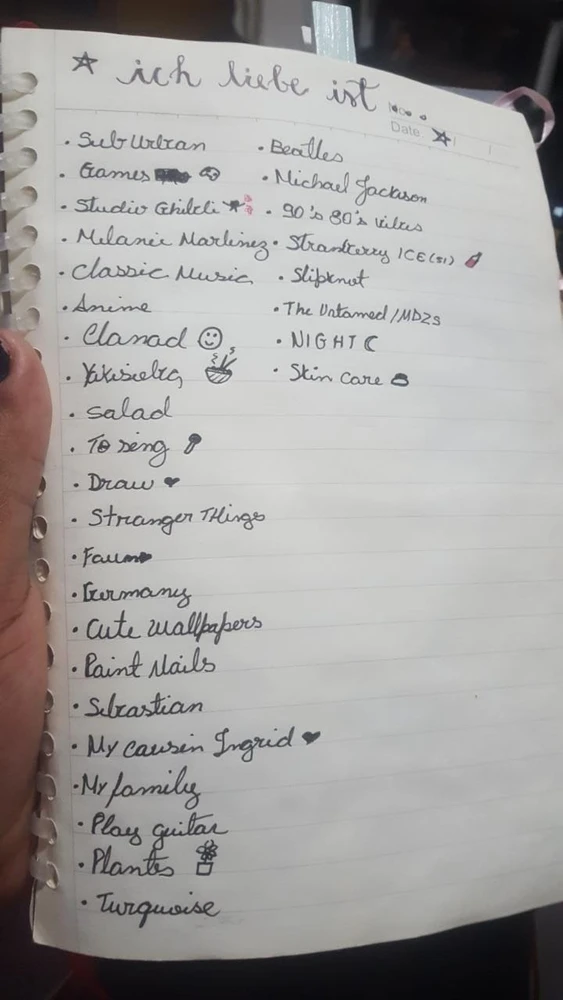 ich liebe ist
Date
• Sub Urban
• Games
• Studio Ghibli
• Melanie Martinez
• Classic Music
• Anime
• Clanad
• Yakisoba
• Salad
• To sing
• Draw
• Stranger Things
• Faun
• Germany
• Cute wallpapers
• Paint Nails
• Sebastian
• My causin Ingrid
• My family
• Play guitar
• Plantes
• Turquoise
• Beatles
• Michael Jackson
• 90's 80's
• ICE
• Slipknot
• The Untamed / MDZS
• NIGHT
• Skin care